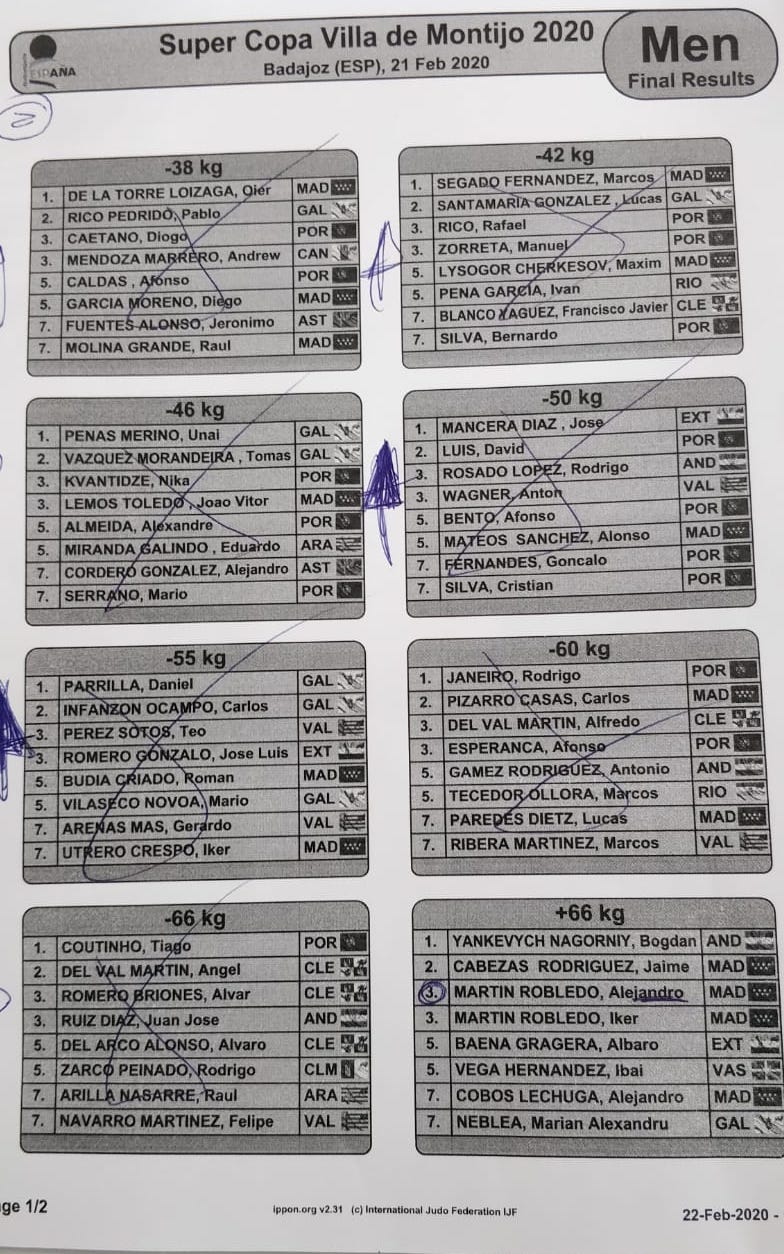 ESPAÑA
Super Copa Villa de Montijo 2020
Badajoz (ESP), 21 Feb 2020
Men
Final Results
2
-38 kg
1. DE LA TORRE LOIZAGA, Oier MAD
2. RICO PEDRIDO, Pablo GAL
3. CAETANO, Diogo POR
3. MENDOZA MARRERO, Andrew CAN
5. CALDAS , Afonso POR
5. GARCIA MORENO, Diego MAD
7. FUENTES ALONSO, Jeronimo AST
7. MOLINA GRANDE, Raul MAD
-42 kg
1. SEGADO FERNANDEZ, Marcos MAD
2. SANTAMARIA GONZALEZ , Lucas GAL
3. RICO, Rafael POR
3. ZORRETA, Manuel POR
5. LYSOGOR CHERKESOV, Maxim MAD
5. PENA GARCIA, Ivan RIO
7. BLANCO YAGUEZ, Francisco Javier CLE
7. SILVA, Bernardo POR
-46 kg
1. PENAS MERINO, Unai GAL
2. VAZQUEZ MORANDEIRA , Tomas GAL
3. KVANTIDZE, Nika POR
3. LEMOS TOLEDO , Joao Vitor MAD
5. ALMEIDA, Alexandre POR
5. MIRANDA GALINDO , Eduardo ARA
7. CORDERO GONZALEZ, Alejandro AST
7. SERRANO, Mario POR
-50 kg
1. MANCERA DIAZ , Jose EXT
2. LUIS, David POR
3. ROSADO LOPEZ, Rodrigo AND
3. WAGNER, Anton VAL
5. BENTO, Afonso POR
5. MATEOS SANCHEZ, Alonso MAD
7. FERNANDES, Goncalo POR
7. SILVA, Cristian POR
-55 kg
1. PARRILLA, Daniel GAL
2. INFANZON OCAMPO, Carlos GAL
3. PEREZ SOTOS, Teo VAL
3. ROMERO GONZALO, Jose Luis EXT
5. BUDIA CRIADO, Roman MAD
5. VILASECO NOVOA, Mario GAL
7. ARENAS MAS, Gerardo VAL
7. UTRERO CRESPO, Iker MAD
-60 kg
1. JANEIRO, Rodrigo POR
2. PIZARRO CASAS, Carlos MAD
3. DEL VAL MARTIN, Alfredo CLE
3. ESPERANCA, Afonso POR
5. GAMEZ RODRIGUEZ, Antonio AND
5. TECEDOR OLLORA, Marcos RIO
7. PAREDES DIETZ, Lucas MAD
7. RIBERA MARTINEZ, Marcos VAL
-66 kg
1. COUTINHO, Tiago POR
2. DEL VAL MARTIN, Angel CLE
3. ROMERO BRIONES, Alvar CLE
3. RUIZ DIAZ, Juan Jose AND
5. DEL ARCO ALONSO, Alvaro CLE
5. ZARCO PEINADO, Rodrigo CLM
7. ARILLA NASARRE, Raul ARA
7. NAVARRO MARTINEZ, Felipe VAL
+66 kg
1. YANKEVYCH NAGORNIY, Bogdan AND
2. CABEZAS RODRIGUEZ, Jaime MAD
3. MARTIN ROBLEDO, Alejandro MAD
3. MARTIN ROBLEDO, Iker MAD
5. BAENA GRAGERA, Albaro EXT
5. VEGA HERNANDEZ, Ibai VAS
7. COBOS LECHUGA, Alejandro MAD
7. NEBLEA, Marian Alexandru GAL
ge 1/2
ippon.org v2.31 (c) International Judo Federation IJF
22-Feb-2020 -